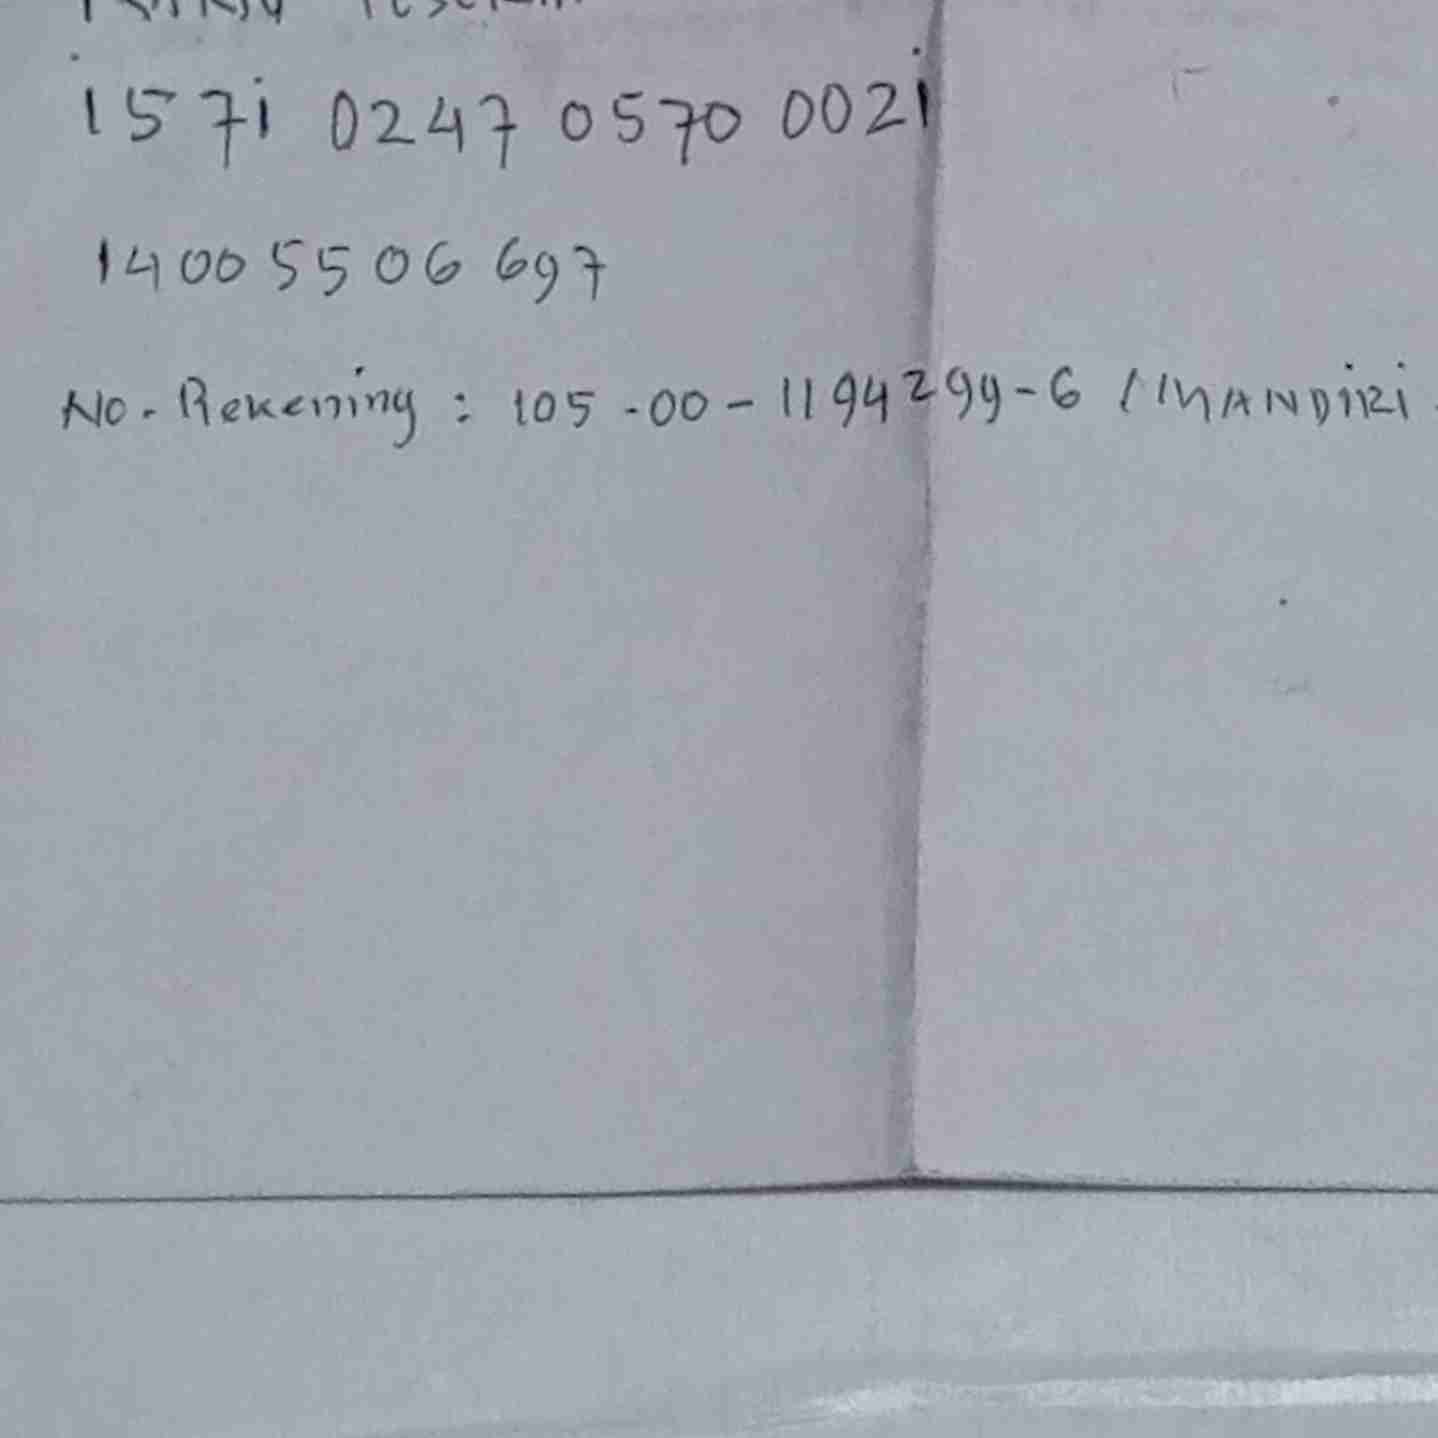 1571 0247 0570 0021
14005506697
No. Rekening : 105-00-1194299-6 / MANDIRI